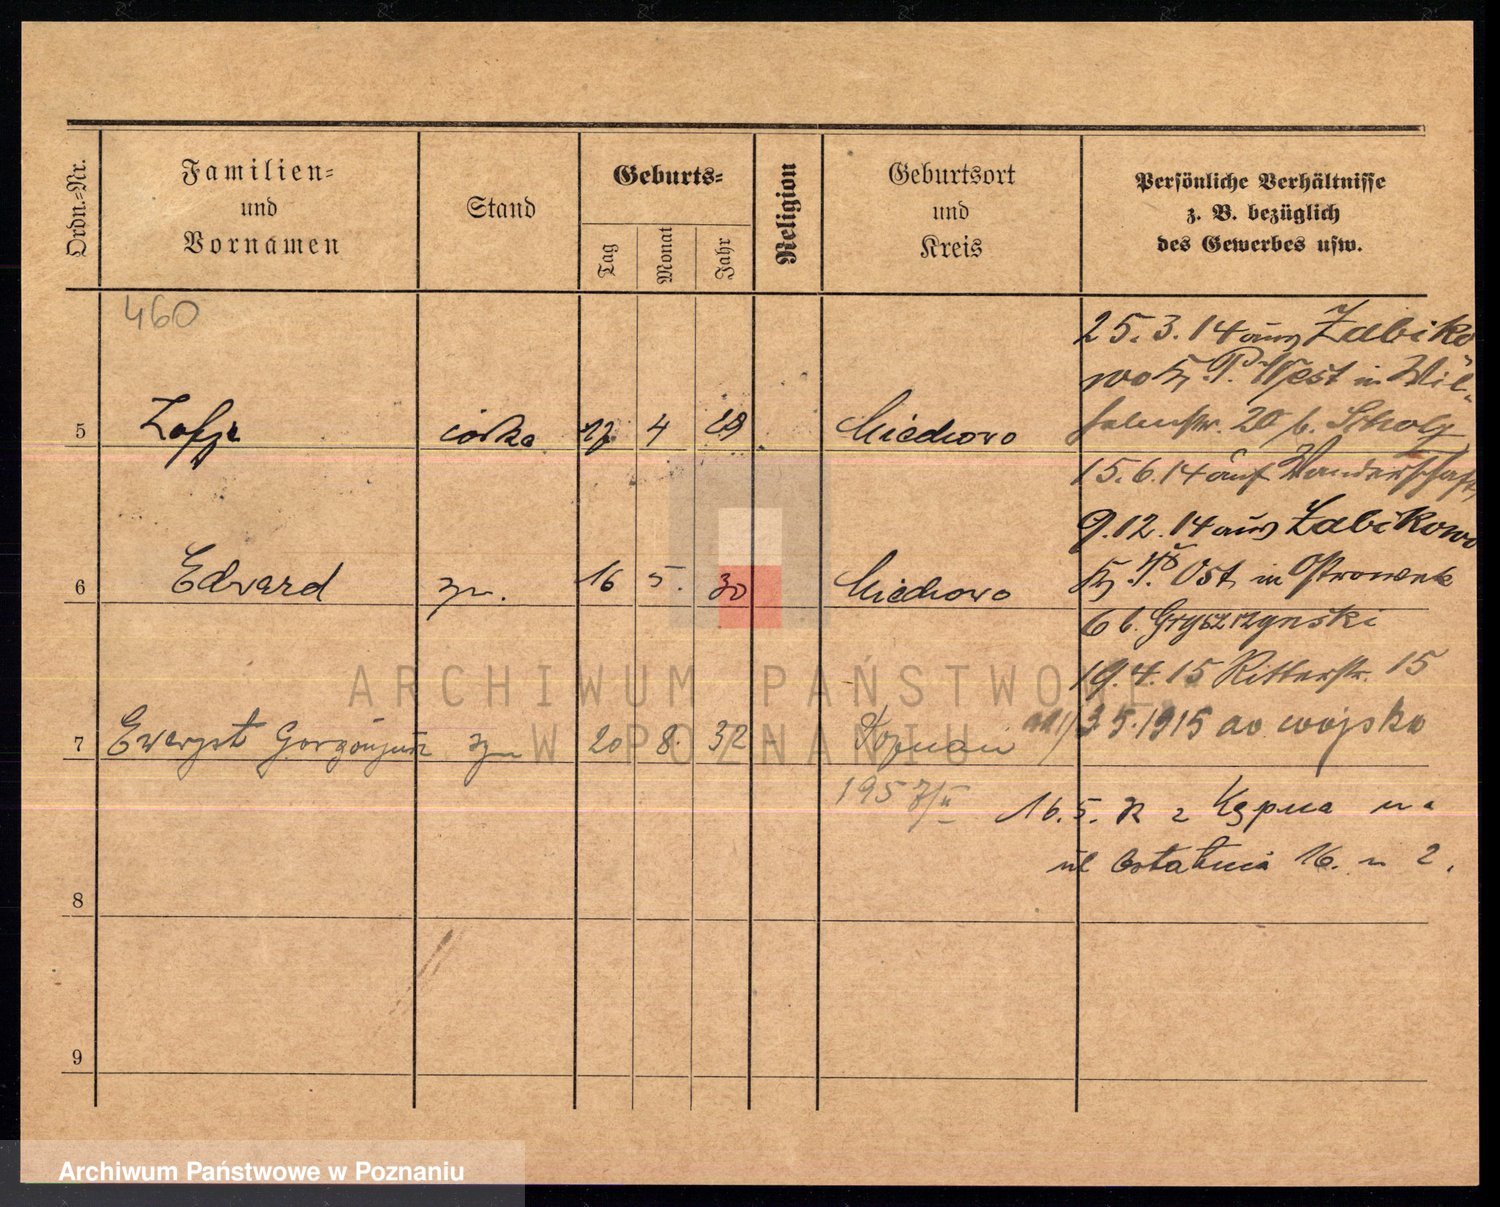 Ordn.-Nr.
Familien-
und
Vornamen
Stand
Geburts-
Tag
Monat
Jahr
Religion
Geburtsort
und
Kreis
Persönliche Verhältnisse
z. B. bezüglich
des Gewerbes usw.
460
25.3.14 aus Żabiko
wo Kr. P. West in Wil-
helmstr. 20 b. Scholz
5 Zofja córka 17 4 29
15.6.14 auf Wanderschaft
9.12.14 aus Żabikowo
Kr. P. Ost in Ostrowek
6 Edward syn. 16 5. 30
6 b. Gryszczynski
19.4.15 Ritterstr. 15
3.5.1915 do wojska
7 Ewaryst syn 20 8. 32 Poznań
1957
16.5. z Kępna na
ul Ostatnia 16. m 2.
8
9
ARCHIWUM PAŃSTWOWE
W POZNANIU
Archiwum Państwowe w Poznaniu